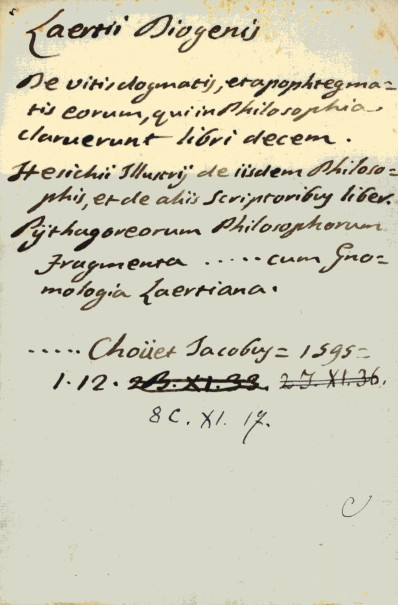 Laertii Diogenis
De vitis dogmatis, et apophtegma=
tis eorum, qui in Philosophia
claruerunt libri decem.
Hesichii Illustrij de iisdem Philoso=
phis, et de aliis Scriptoribus liber.
Pythagoreorum Philosophorum
Fragmenta ..... cum Gno=
mologia Laertiana.
..... Choüet Jacobus= 1595=
1.12. 2B.XI.33. 2J.XI.36.
8C.XI.17.